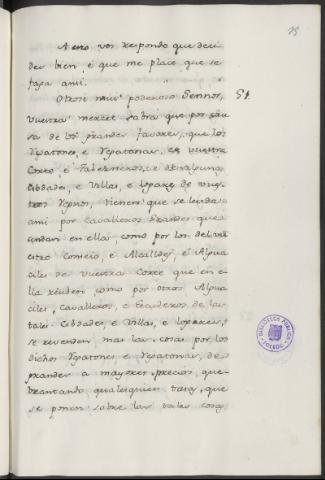 25
A esto vos respondo que deci-
des bien, é que me place que se
faga ansi.
Otrosi mui poderoso Sennor, 51.
vuestra merced sabrá que por cau-
sa de los grandes favores, que los
Regatones, e Regatonas, de vuestra
Corte é Taberneros, é de algunas
Cibdades, e Villas, e logares de vues-
tros Regnos, tienen que se les da
ansi por Cavalleros Grandes que
andan en ellas, como por los del vu-
estro Consejo, é Alcalldes, é Algua-
ciles de vuestra Corte que en e-
lla residen como por otros Algua-
ciles, Cavalleros, é Escuderos de las
tales Cibdades, é Villas, e logares,
se revenden mas las cosas por los
dichos Regatones e Regatonas, de
grandes a mayores precios, que-
brantando qualesquier tasas, que
se ponen sobre las tales cosas
BIBLIOTECA PUBLICA
TOLEDO